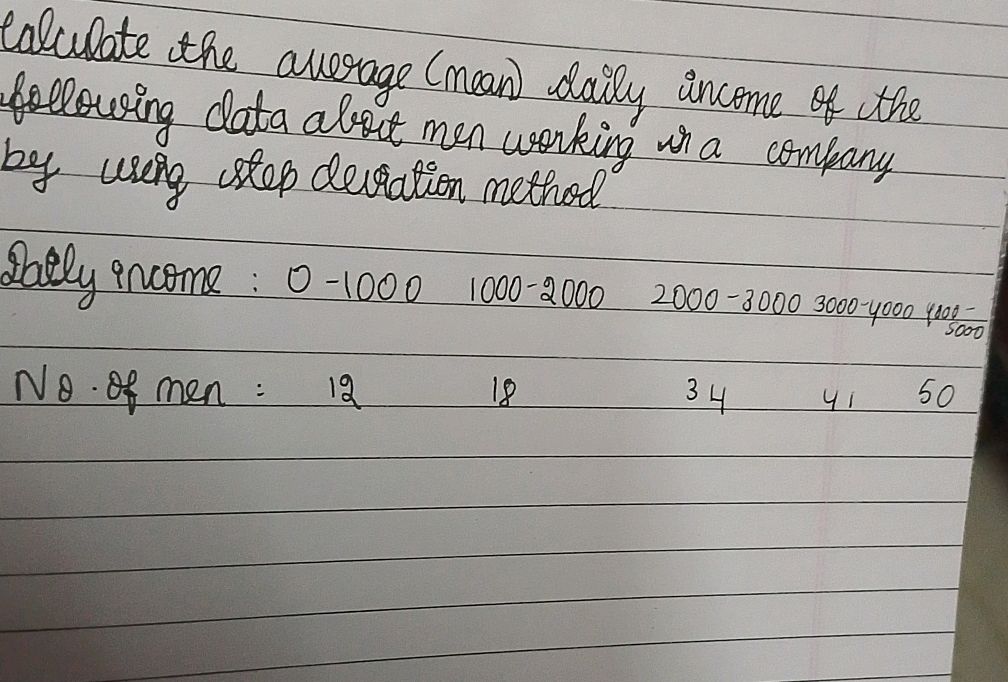 Calculate the average (mean) daily income of the
following data about men working in a company
by using step deviation method
Daily income : 0-1000 1000-2000 2000-3000 3000-4000 4000-5000
No. of men : 12 18 34 41 50